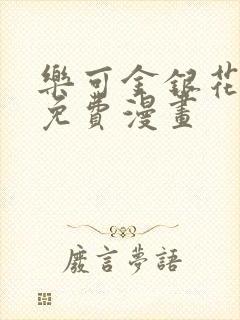 樂可金銀花
免費漫畫
廢言夢語